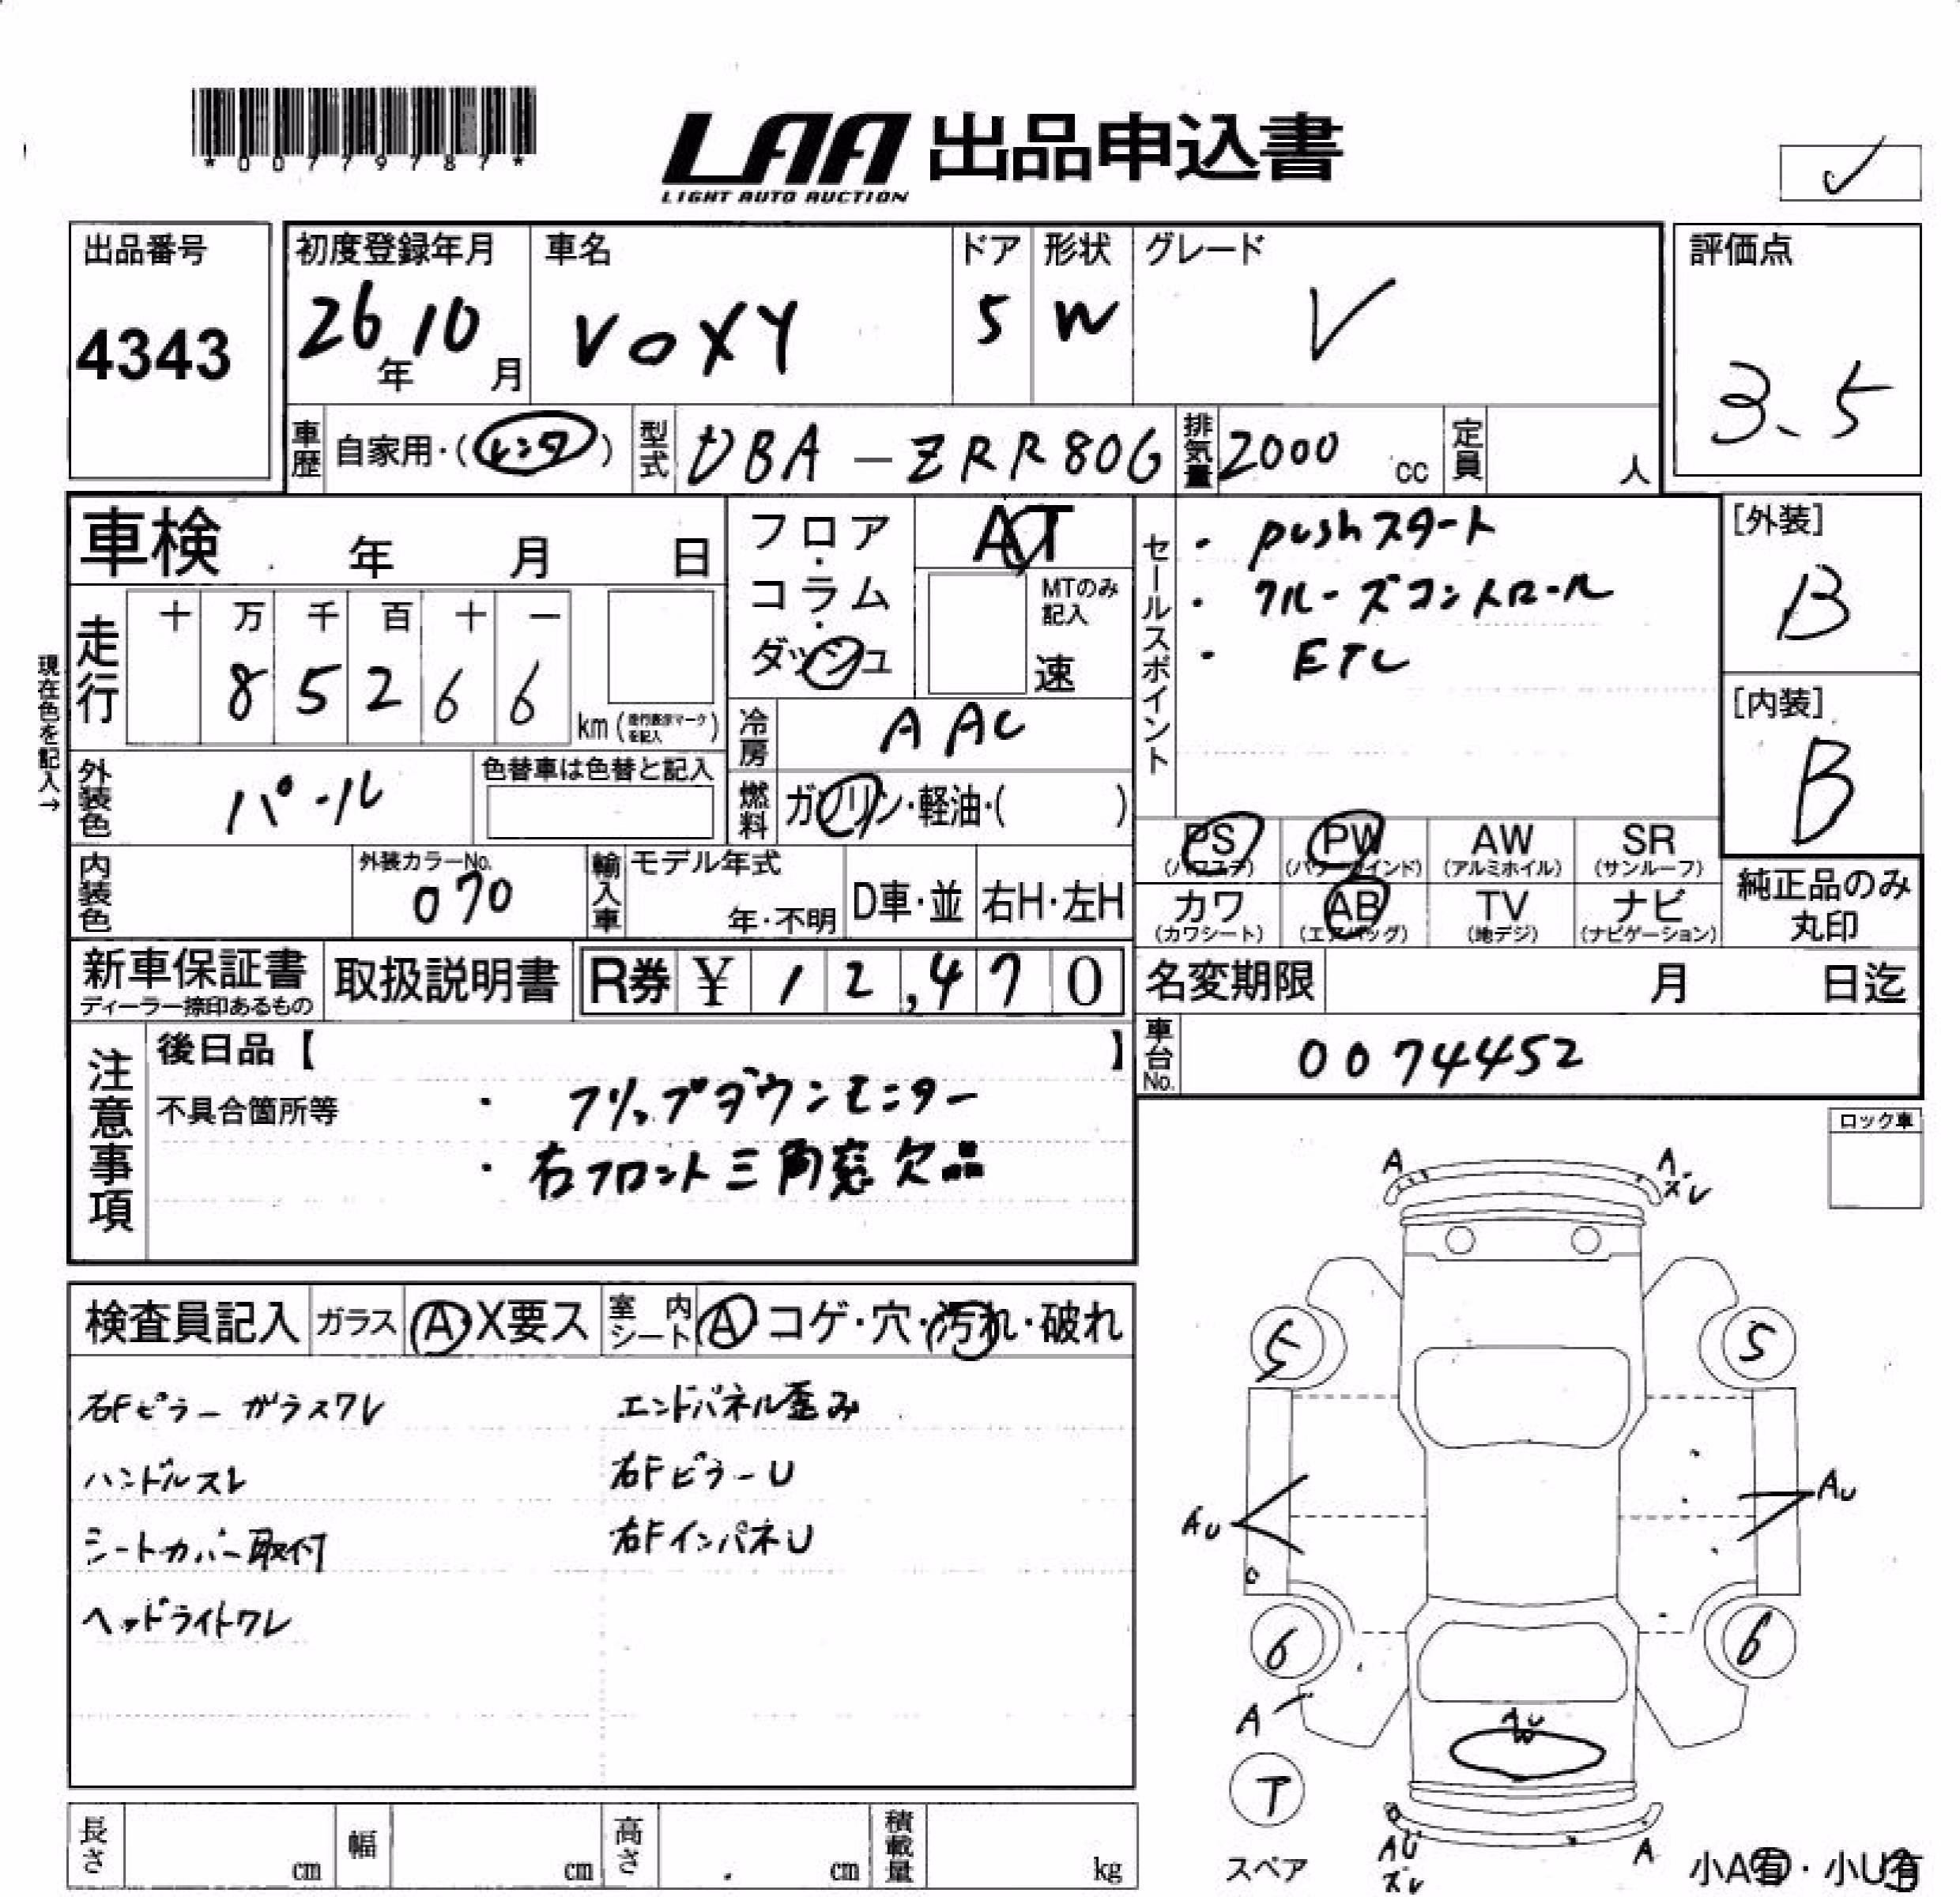 *0077978７*
LAA 出品申込書
LIGHT AUTO AUCTION
出品番号
4343
初度登録年月
26年 10月
車名
VOXY
ドア
5
形状
W
グレード
V
評価点
3.5
車歴 自家用・(レンタ)
型式 DBA-ZRR80G
排気量 2000 cc
定員 人
車検 年 月 日
フロア・
コラム・
ダッシュ
AT
MTのみ
記入
速
現在色を記入→
走行
十 万 千 百 十 一
8 5 2 6 6
km (走行表示マークを記入)
冷房 AAC
燃料 ガソリン・軽油・( )
外装色 パール
色替車は色替と記入
内装色
外装カラーNo.
070
輸入車
モデル年式
年・不明
D車・並 右H・左H
セールスポイント
・pushスタート
・クルーズコントロール
・ETC
[外装]
B
[内装]
B
PS
(パワステ)
PW
(パワーウインド)
AW
(アルミホイル)
SR
(サンルーフ)
カワ
(カワシート)
AB
(エアバッグ)
TV
(地デジ)
ナビ
(ナビゲーション)
純正品のみ
丸印
新車保証書
ディーラー捺印あるもの
取扱説明書
R券 ¥ 12,470
名変期限 月 日迄
車台No. 0074452
注意事項
後日品【 】
不具合箇所等
・フリップダウンモニター
・右フロント三角窓欠品
ロック車
検査員記入 ガラス A・X要ス 室内シート A コゲ・穴・汚れ・破れ
右Fピラーガラスワレ
ハンドルスレ
シートカバー取付
ヘッドライトワレ
エンドパネル歪み
右FピラーU
右FインパネU
A
A
ズレ
5
5
AU
AU
6
6
A
AU
T
スペア
AU
ズレ
A
小A有・小U有
長さ cm
幅 cm
高さ cm
積載量 kg